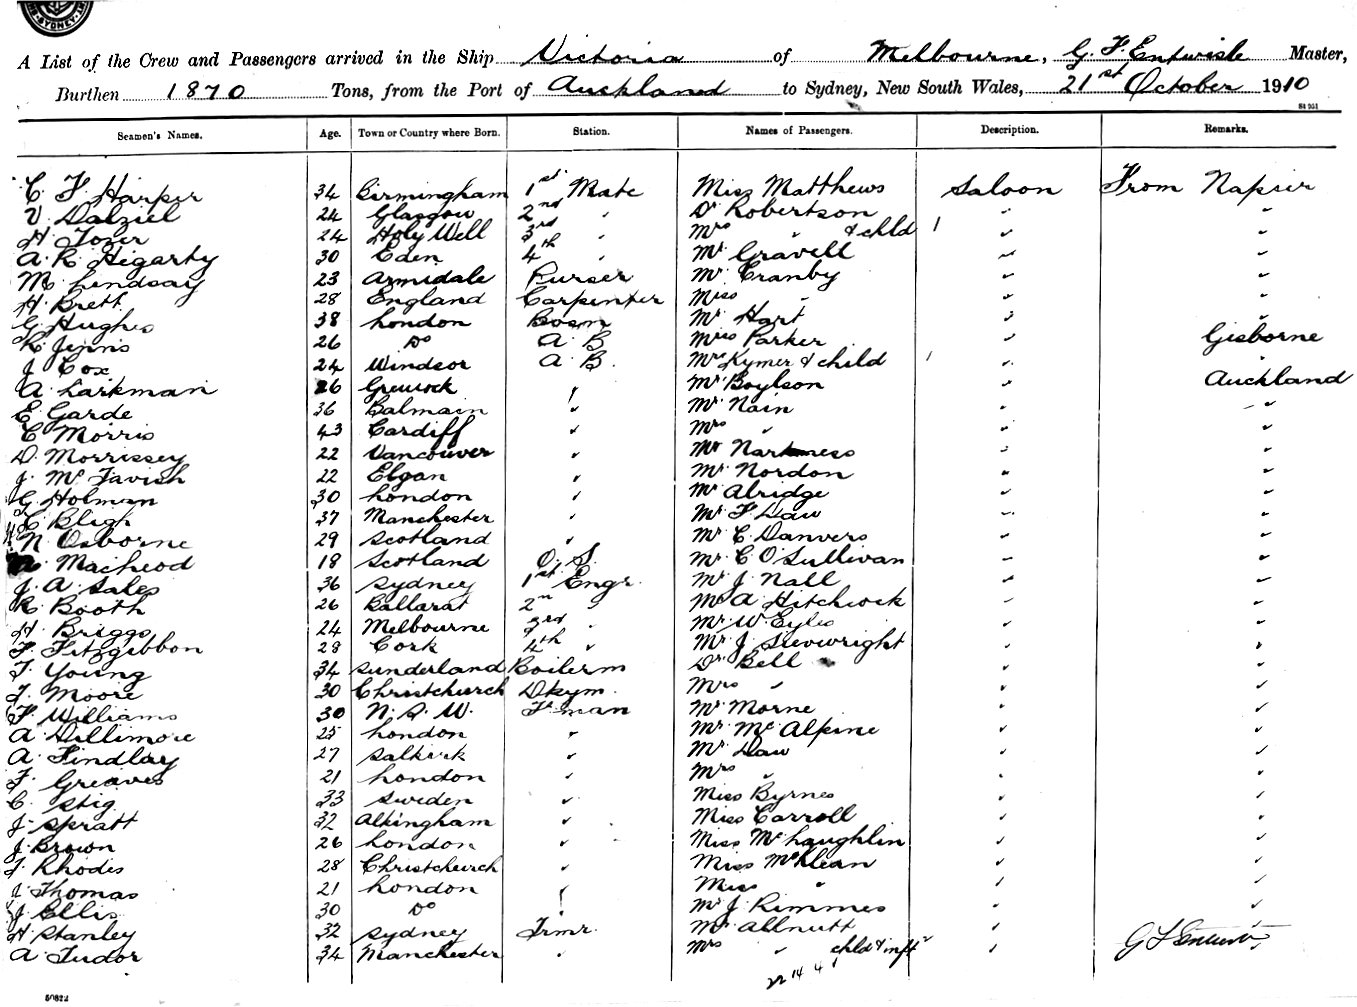 SYDNEY
A List of the Crew and Passengers arrived in the Ship Victoria of Melbourne, G. F. Entwisle Master,
Burthen 1870 Tons, from the Port of Auckland to Sydney, New South Wales, 21st October 1910
Seamen's Names. Age. Town or Country where Born. Station. Names of Passengers. Description. Remarks.
C F Harper 34 Birmingham 1st Mate Miss Matthews Saloon From Napier
V. Dalziel 24 Glasgow 2nd " Dr Robertson " "
H Tozer 24 Holy Well 3rd " Mrs " & chld 1 " "
A. R. Higarty 30 Eden 4th " Mr Gravell " "
M Lindsay 23 Armidale Purser Mr Cranby " "
H Brett 28 England Carpenter Miss " " "
G Hughes 38 London Bosm Mr Hart " "
R Jinns 26 Do A B Mrs Parker " Gisborne
J Cox 24 Windsor A B. Mrs Kymer & child 1 " "
A Larkman 26 Greenock " Mr Boylson " Auckland
E Garde 36 Balmain " Mr Nain " "
C Morris 43 Cardiff " Mrs " " "
D. Morrissey 22 Vancouver " Mr Harkness " "
J. McTavish 22 Elgan " Mr Nordon " "
G Holman 30 London " Mr Alridge " "
C Bligh 37 Manchester " Mr F Daw " "
N Osborne 29 Scotland " Mr C Danvers " "
Macleod 18 Scotland O. S. Mr C O'Sullivan " "
J. A. Sales 36 Sydney 1st Engr. Mr J Nall " "
R Booth 26 Ballarat 2n " Mr A Hitchcock " "
H Briggs 24 Melbourne 3rd " Mr W Eyles " "
F. Fitzgibbon 28 Cork 4th " Mr J Sievwright " "
T Young 34 Sunderland Boilerm Dr Bell " "
T. Moore 30 Christchurch Dkym. Mrs " " "
F Williams 30 N. S. W. F'man Mr Morne " "
A Dillimore 25 London " Mr McAlpine " "
A Findlay 27 Salkirk " Mr Daw " "
F Greaves 21 London " Mrs " " "
C. Stig 33 Sweden " Miss Byrnes " "
J. Spratt 32 Altingham " Miss Carroll " "
J Brown 26 London " Miss McLaughlin " "
T Rhodes 28 Christchurch " Miss McKlean " "
J Thomas 21 London " Miss " " "
J Ellis 30 Do " Mr J Rimmes " "
H Stanley 32 Sydney Trmr. Mr Allnutt " "
A Tudor 34 Manchester " Mrs " chld & inft 2 " G F Entwisle
22 14 4 1
50822